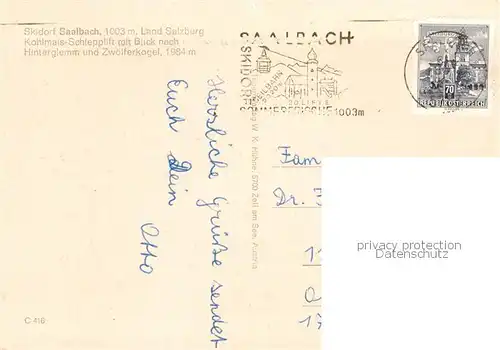 Skidorf Saalbach, 1003 m, Land Salzburg
Kohlmais-Schlepplift mit Blick nach
Hinterglemm und Zwölferkogel, 1984 m
SAALBACH
SKIDORF
SEILBAHN
SOMMERFRISCHE 1003m
70
REPUBLIK ÖSTERREICH
Herzliche Grüße sendet
Euch Dein
Otto
W. K. Hühne, 5700 Zell am See, Austria
Fam
Dr.
privacy protection
Datenschutz
C 410